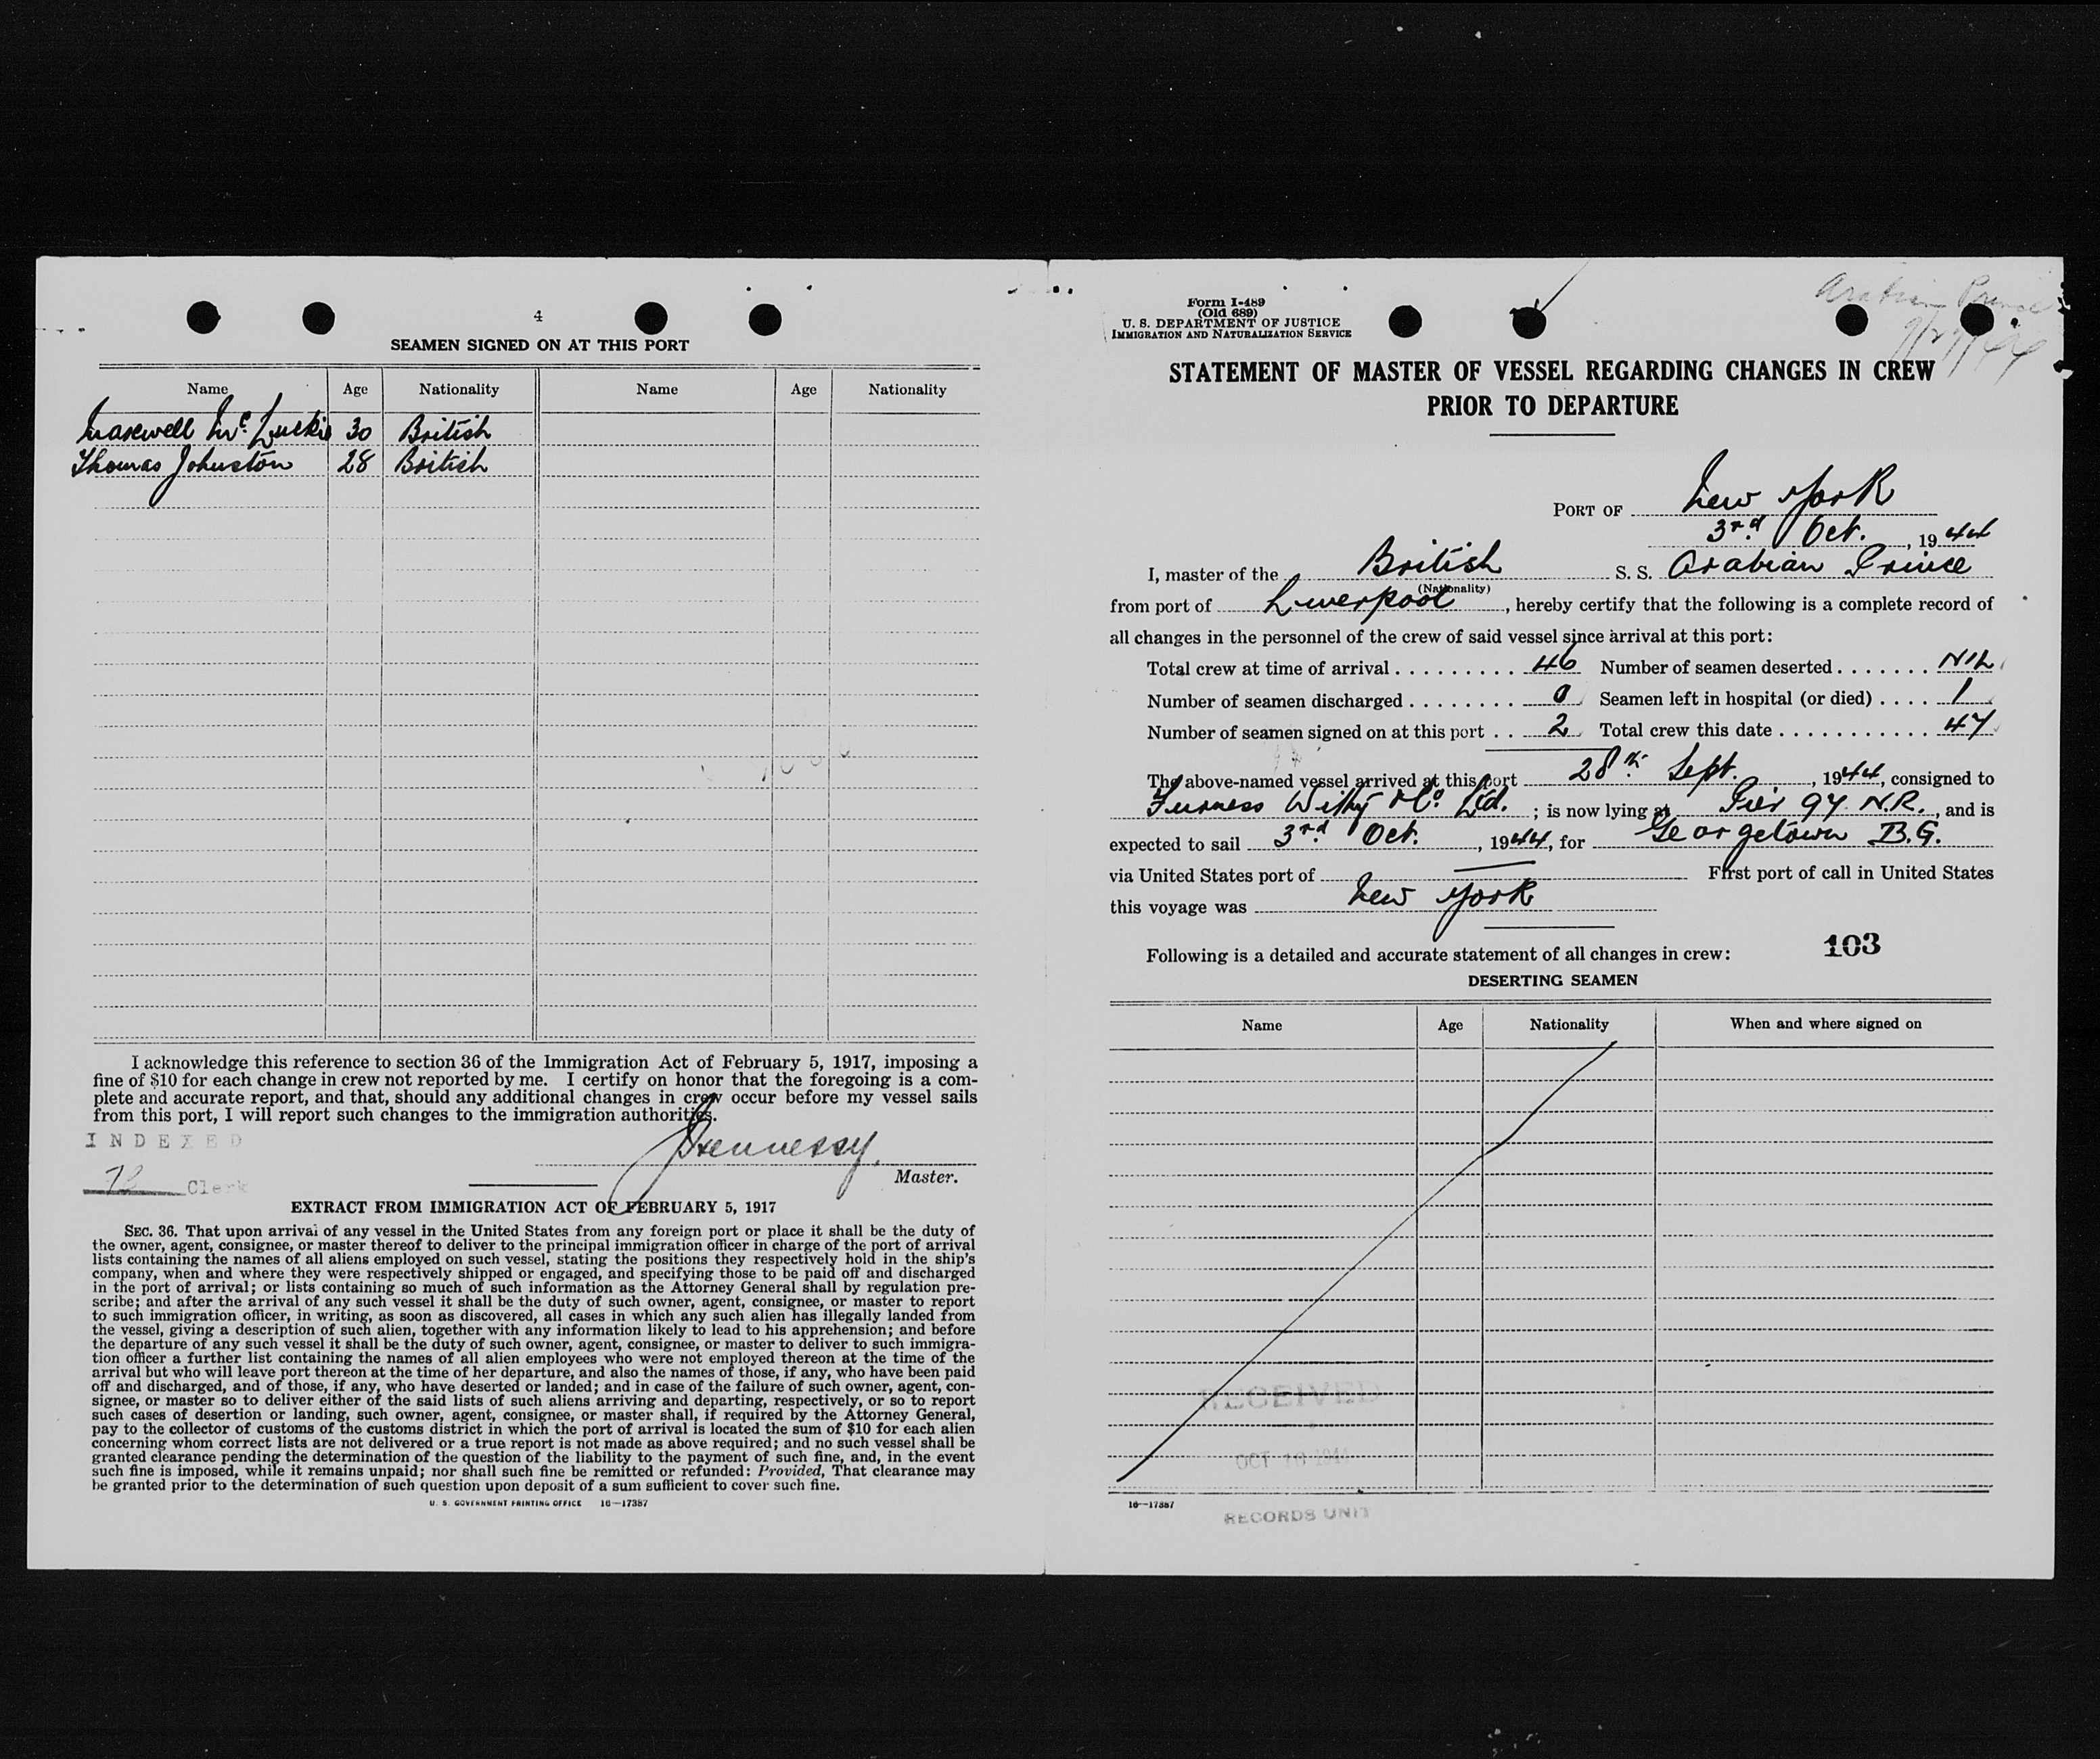 4
SEAMEN SIGNED ON AT THIS PORT
Name Age Nationality Name Age Nationality
Maxwell Mc Luckie 30 British
Thomas Johnston 28 British
I acknowledge this reference to section 36 of the Immigration Act of February 5, 1917, imposing a
fine of $10 for each change in crew not reported by me. I certify on honor that the foregoing is a com-
plete and accurate report, and that, should any additional changes in crew occur before my vessel sails
from this port, I will report such changes to the immigration authorities.
INDEXED
Hennessy.
Master.
Clerk
EXTRACT FROM IMMIGRATION ACT OF FEBRUARY 5, 1917
SEC. 36. That upon arrival of any vessel in the United States from any foreign port or place it shall be the duty of
the owner, agent, consignee, or master thereof to deliver to the principal immigration officer in charge of the port of arrival
lists containing the names of all aliens employed on such vessel, stating the positions they respectively hold in the ship's
company, when and where they were respectively shipped or engaged, and specifying those to be paid off and discharged
in the port of arrival; or lists containing so much of such information as the Attorney General shall by regulation pre-
scribe; and after the arrival of any such vessel it shall be the duty of such owner, agent, consignee, or master to report
to such immigration officer, in writing, as soon as discovered, all cases in which any such alien has illegally landed from
the vessel, giving a description of such alien, together with any information likely to lead to his apprehension; and before
the departure of any such vessel it shall be the duty of such owner, agent, consignee, or master to deliver to such immigra-
tion officer a further list containing the names of all alien employees who were not employed thereon at the time of the
arrival but who will leave port thereon at the time of her departure, and also the names of those, if any, who have been paid
off and discharged, and of those, if any, who have deserted or landed; and in case of the failure of such owner, agent, con-
signee, or master so to deliver either of the said lists of such aliens arriving and departing, respectively, or so to report
such cases of desertion or landing, such owner, agent, consignee, or master shall, if required by the Attorney General,
pay to the collector of customs of the customs district in which the port of arrival is located the sum of $10 for each alien
concerning whom correct lists are not delivered or a true report is not made as above required; and no such vessel shall be
granted clearance pending the determination of the question of the liability to the payment of such fine, and, in the event
such fine is imposed, while it remains unpaid; nor shall such fine be remitted or refunded: Provided, That clearance may
be granted prior to the determination of such question upon deposit of a sum sufficient to cover such fine.
U. S. GOVERNMENT PRINTING OFFICE 16—17387
Arabian Prince
Form I-489
(Old 689)
U. S. DEPARTMENT OF JUSTICE
IMMIGRATION AND NATURALIZATION SERVICE
STATEMENT OF MASTER OF VESSEL REGARDING CHANGES IN CREW
PRIOR TO DEPARTURE
PORT OF New York
3rd Oct., 1944
I, master of the British S. S. Arabian Prince
(Nationality)
from port of Liverpool, hereby certify that the following is a complete record of
all changes in the personnel of the crew of said vessel since arrival at this port:
Total crew at time of arrival 46 Number of seamen deserted NIL
Number of seamen discharged 0 Seamen left in hospital (or died) 1
Number of seamen signed on at this port 2 Total crew this date 47
The above-named vessel arrived at this port 28th Sept., 1944, consigned to
Furness Withy & Co. Ltd.; is now lying at Pier 97 N.R., and is
expected to sail 3rd Oct., 1944, for Georgetown B.G.
via United States port of — First port of call in United States
this voyage was New York
103
Following is a detailed and accurate statement of all changes in crew:
DESERTING SEAMEN
Name Age Nationality When and where signed on
RECEIVED
OCT 10 1944
16—17387
RECORDS UNIT